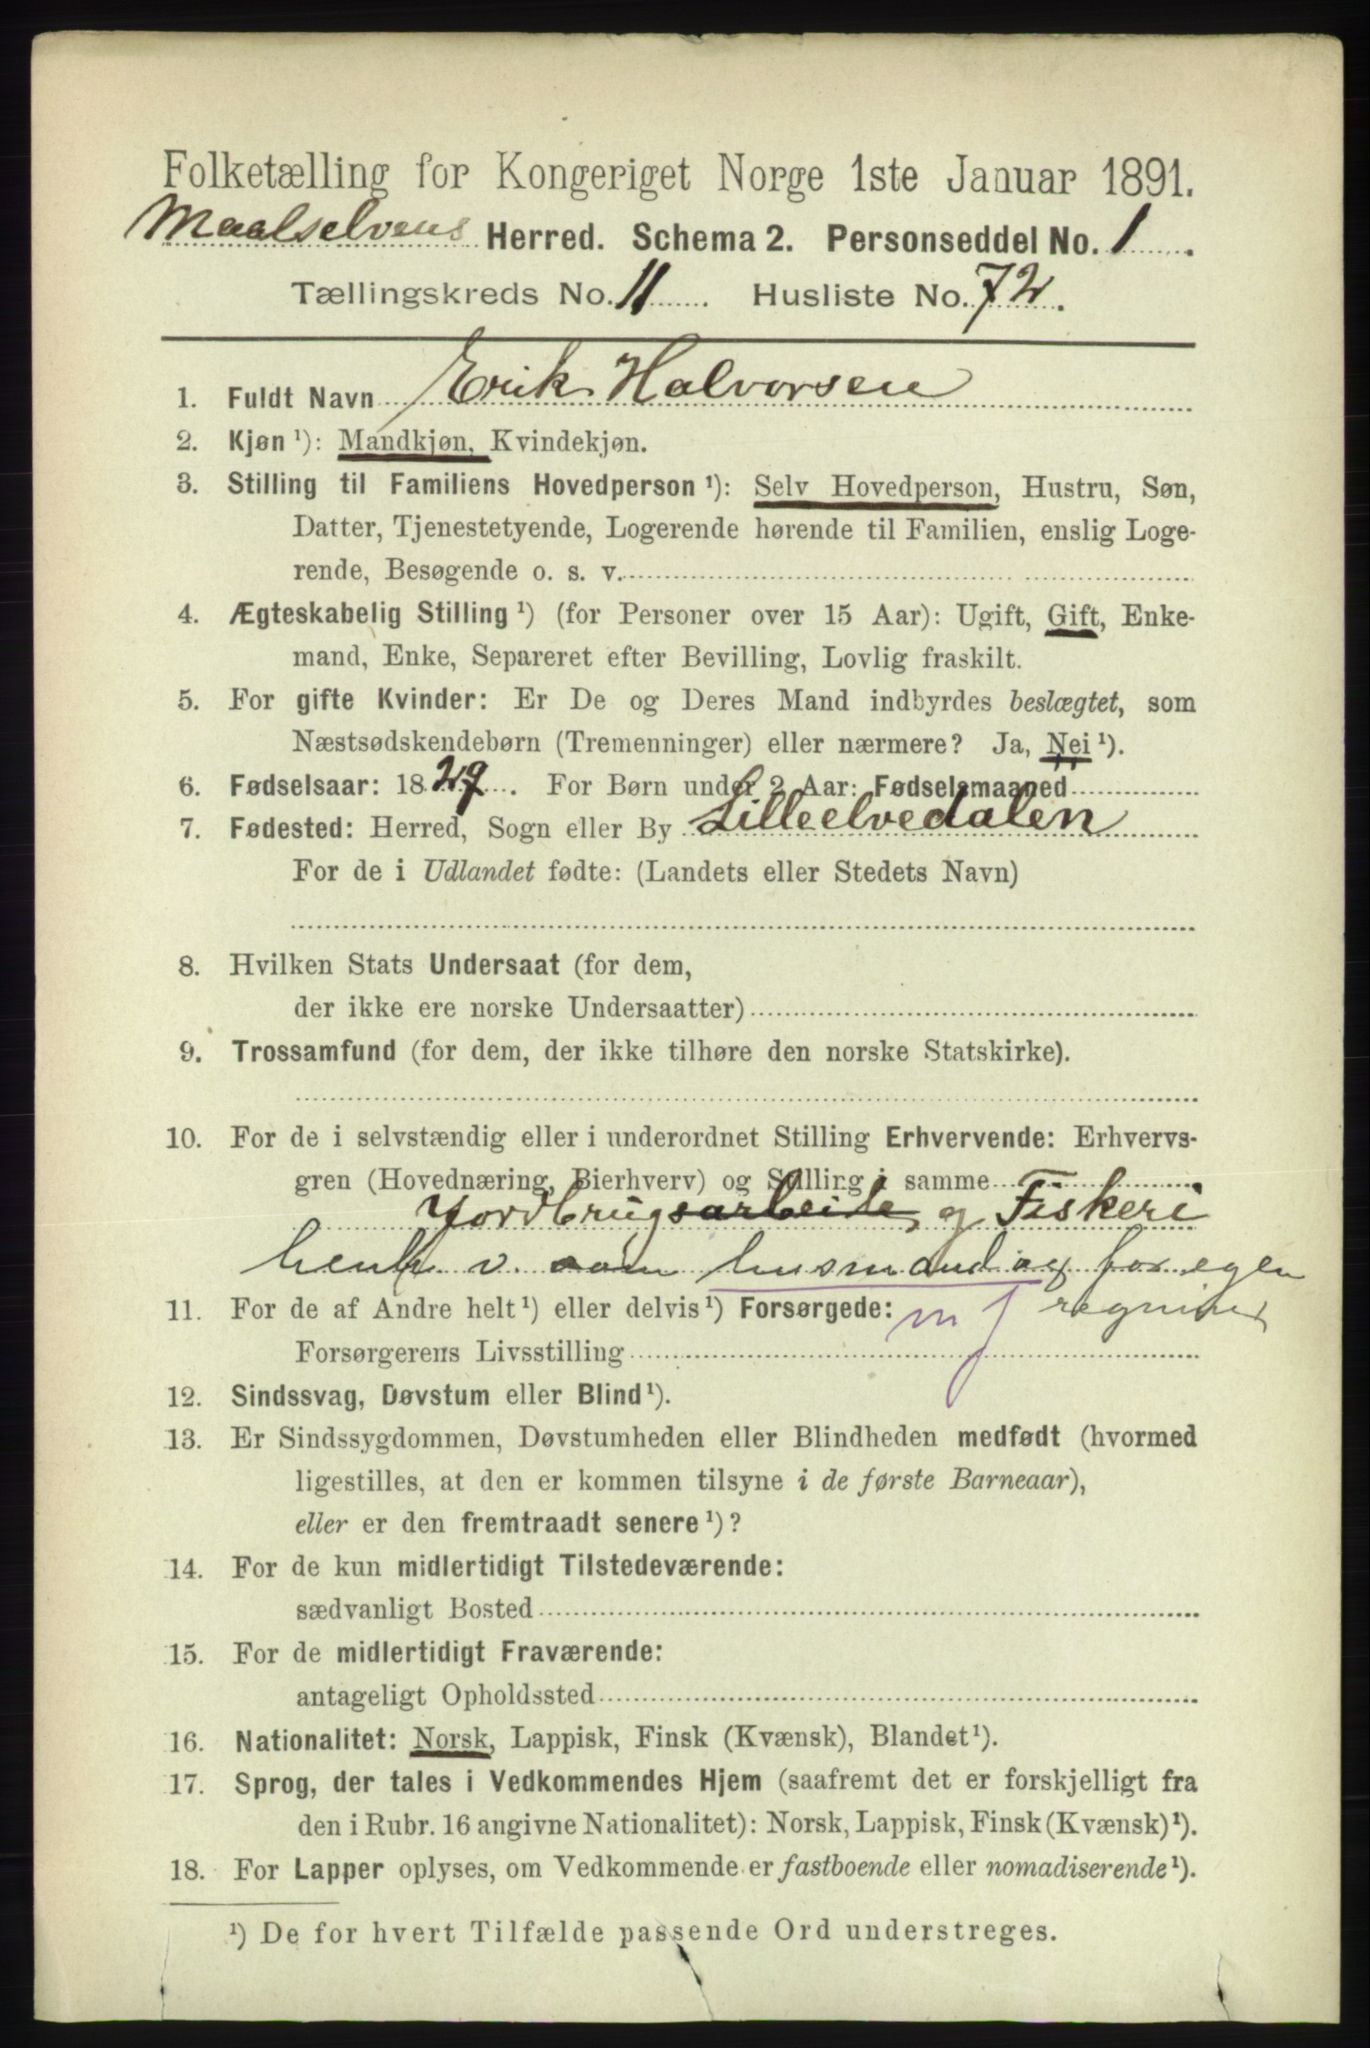 Folketælling for Kongeriget Norge 1ste Januar 1891.
Maalselvens Herred. Schema 2. Personseddel No. 1.
Tællingskreds No. 11 Husliste No. 72.
1. Fuldt Navn Erik Halvorsen
2. Kjøn ¹): Mandkjøn, Kvindekjøn.
3. Stilling til Familiens Hovedperson ¹): Selv Hovedperson, Hustru, Søn,
Datter, Tjenestetyende, Logerende hørende til Familien, enslig Loge-
rende, Besøgende o. s. v.
4. Ægteskabelig Stilling ¹) (for Personer over 15 Aar): Ugift, Gift, Enke-
mand, Enke, Separeret efter Bevilling, Lovlig fraskilt.
5. For gifte Kvinder: Er De og Deres Mand indbyrdes beslægtet, som
Næstsødskendebørn (Tremenninger) eller nærmere? Ja, Nei ¹).
6. Fødselsaar: 1829. For Børn under 2 Aar: Fødselsmaaned
7. Fødested: Herred, Sogn eller By Lilleelvedalen
For de i Udlandet fødte: (Landets eller Stedets Navn)
8. Hvilken Stats Undersaat (for dem,
der ikke ere norske Undersaatter)
9. Trossamfund (for dem, der ikke tilhøre den norske Statskirke).
10. For de i selvstændig eller i underordnet Stilling Erhvervende: Erhvervs-
gren (Hovednæring, Bierhverv) og Stilling i samme
Jordbrugsarbeide og Fiskeri
henh v. som husmand og for egen
regning
11. For de af Andre helt ¹) eller delvis ¹) Forsørgede: m f
Forsørgerens Livsstilling
12. Sindssvag, Døvstum eller Blind ¹).
13. Er Sindssygdommen, Døvstumheden eller Blindheden medfødt (hvormed
ligestilles, at den er kommen tilsyne i de første Barneaar),
eller er den fremtraadt senere ¹)?
14. For de kun midlertidigt Tilstedeværende:
sædvanligt Bosted
15. For de midlertidigt Fraværende:
antageligt Opholdssted
16. Nationalitet: Norsk, Lappisk, Finsk (Kvænsk), Blandet ¹).
17. Sprog, der tales i Vedkommendes Hjem (saafremt det er forskjelligt fra
den i Rubr. 16 angivne Nationalitet): Norsk, Lappisk, Finsk (Kvænsk) ¹).
18. For Lapper oplyses, om Vedkommende er fastboende eller nomadiserende ¹).
¹) De for hvert Tilfælde passende Ord understreges.